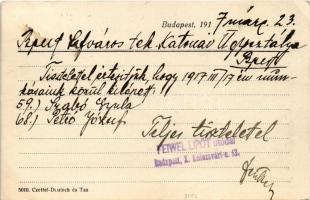 Budapest, 1917 márc. 23.
Bpest Székesfőváros tek. Katonai Ügyosztálya
Bpest
Tisztelettel értesítjük, hogy 1917 III/17 én mun-
kásaink közül kilépett
59.) Szabó Gyula
68.) Pető József
Teljes tisztelettel
FEIWEL LIPÓT utódai
Budapest, X.
5010. Czettel-Deutsch és Tsa